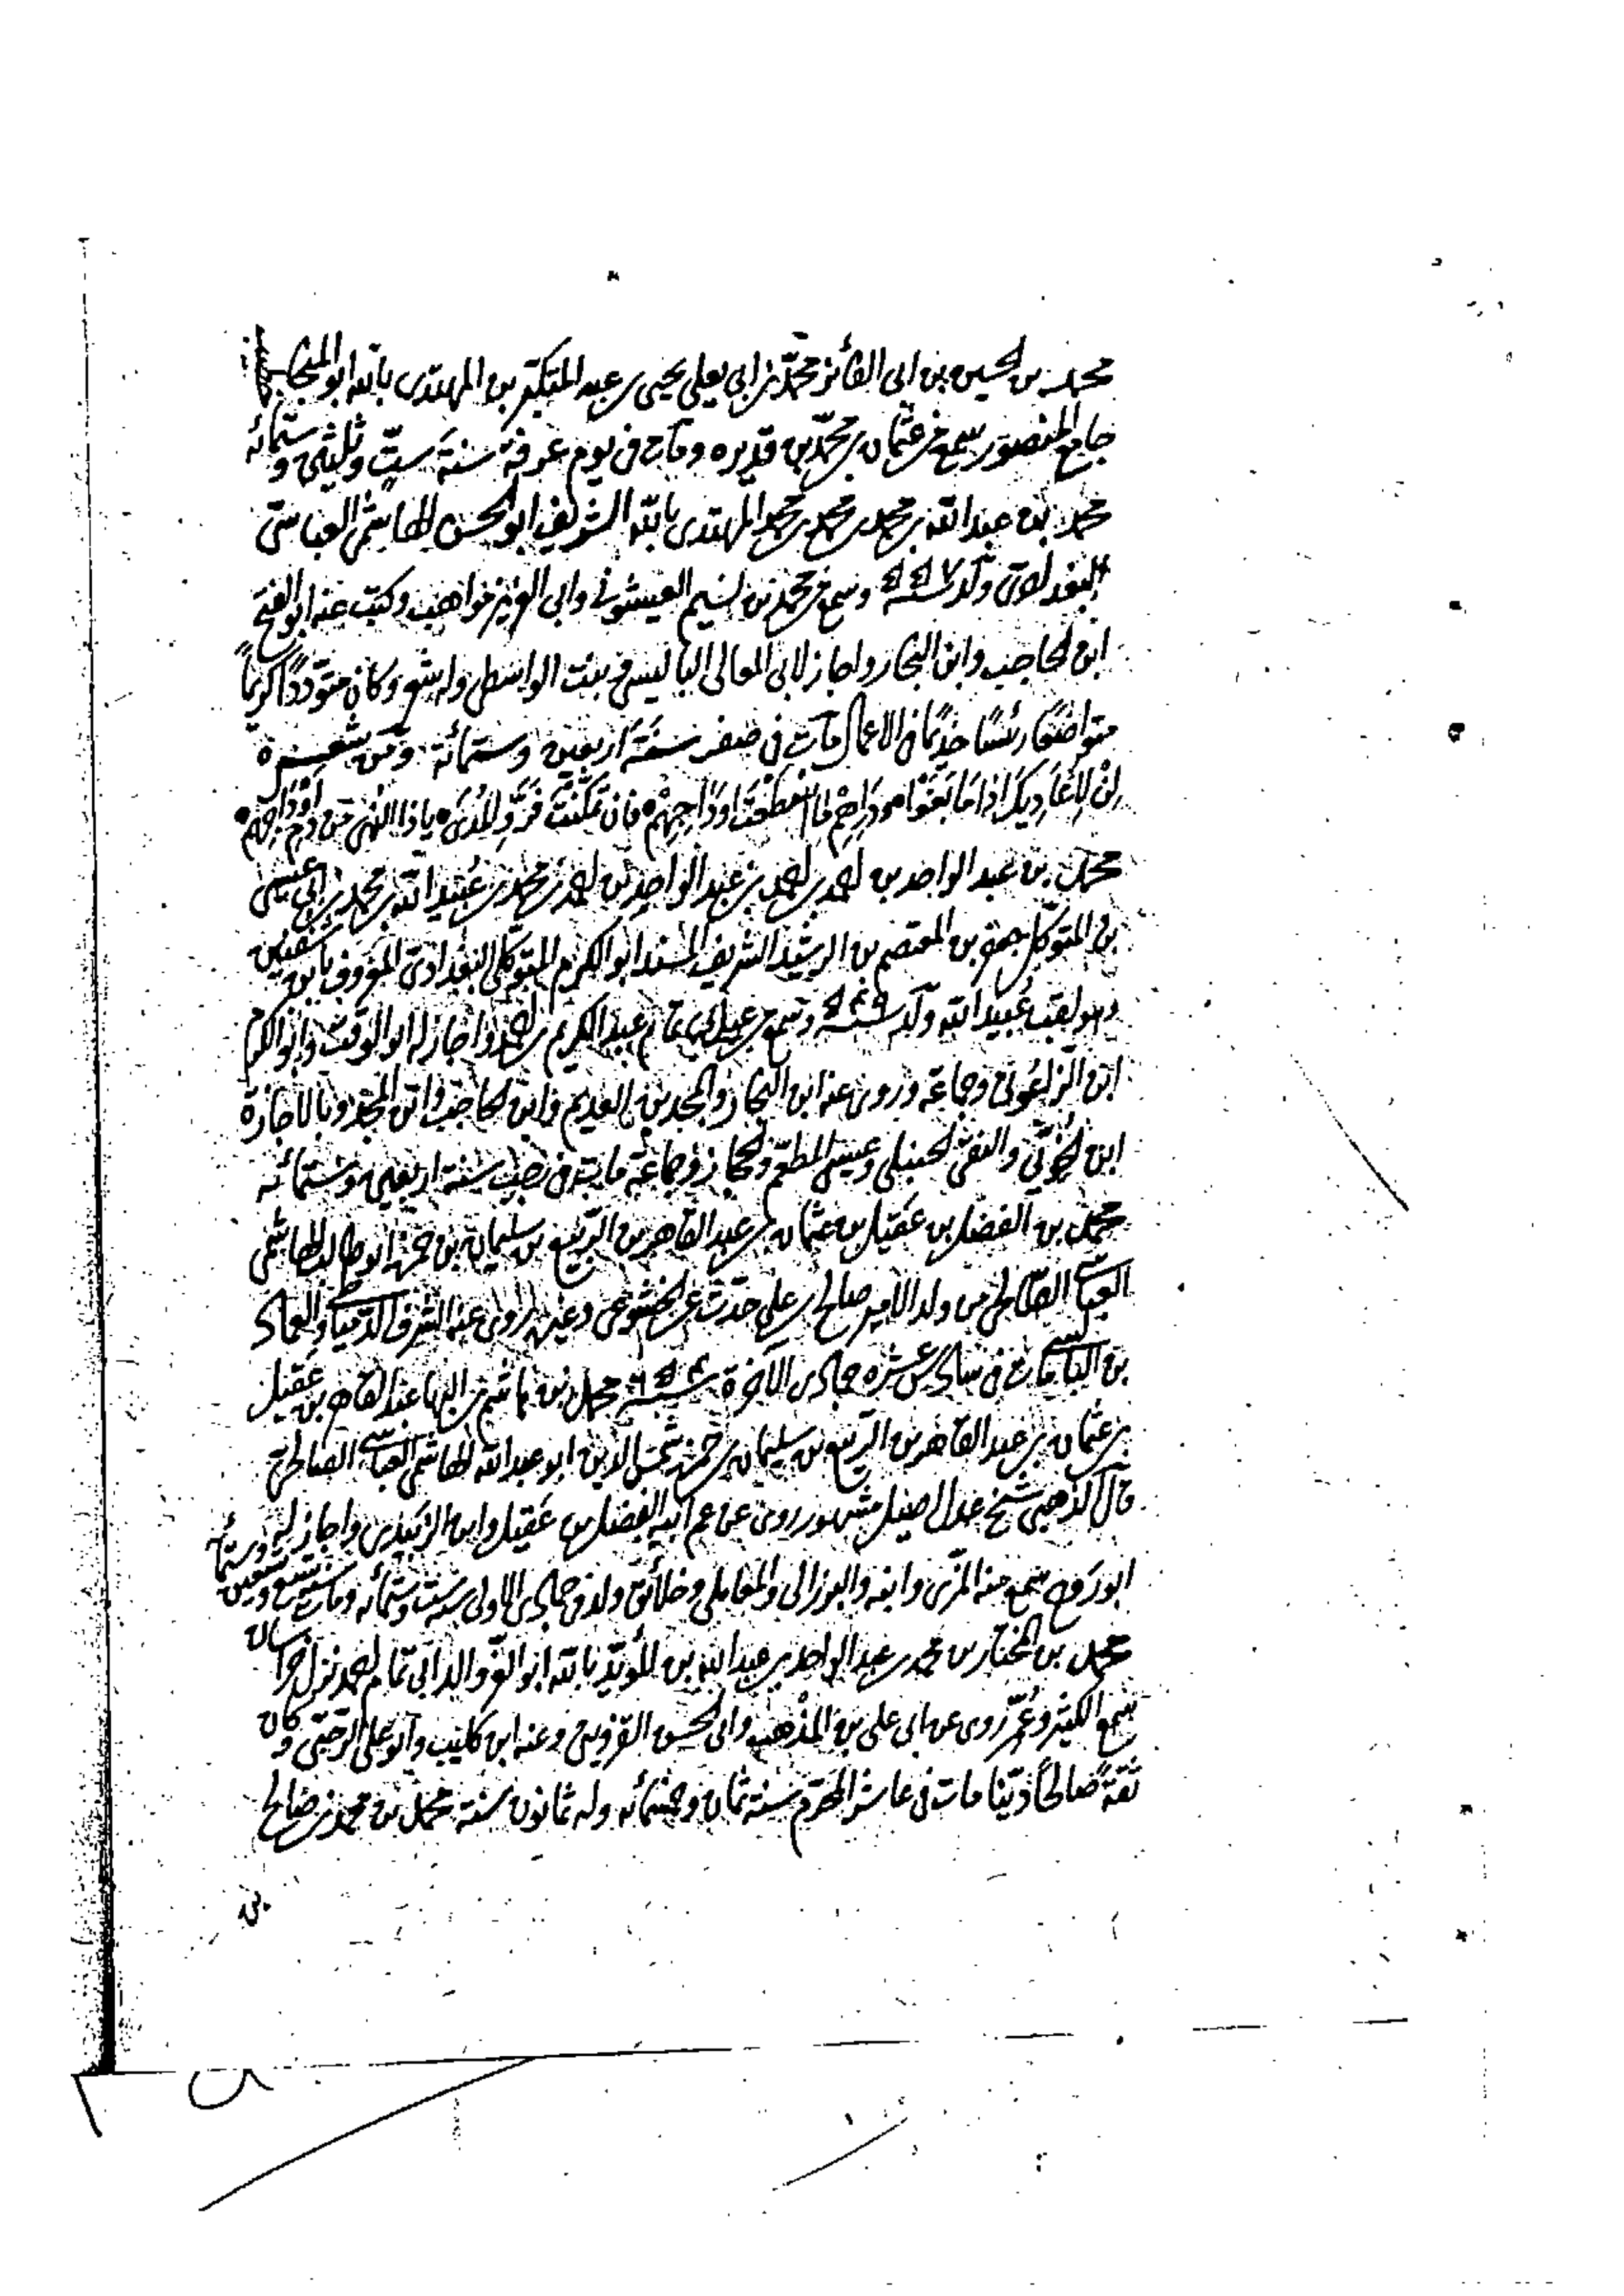 محمد بن الحسين بن ابى الفائز محمّد بن ابى يعلى يحيى بن عبد المتكبّر بن المهتدى بالله ابو المنجا
جامع المنصور سمع من عثمان بن محمّد بن قديره ومات فى يوم عرفة سنة ستّ وثلثين وستمائه
محمد بن عبد الله بن محمد بن محمد بن محمد المهتدى بالله الشريف ابو الحسن الهاشمى العباسى
البغدادى ولد سنة وسمع من محمد بن نسيم العيشونى وابى العز بن مواهب وكتب عنه ابو الفتح
ابن الحاجب وابن النجار واجاز لابى المعالى البالسى و بنت الواسطى وله شعر وكان متودّدًا كريمًا
متواضعًا رئسًا خدمًا فى الاعمال مات فى صفر سنة اربعين وستمائة ومن شعره
إن الأعاديك اذا ما بغوا فان تمكّنت يا ذا النّهى من دم أوداجهم
محمد بن عبد الواحد بن احمد بن احمد بن عبد الواحد بن احمد بن محمد بن عُبيد الله بن محمد بن ابى عيسى
بن المتوكّل جعفر بن المعتصم بن الرشيد الشريف المسند ابو الكرم المتوكّلى البغدادى المعروف بابن شفنين
وهو لقب عُبيد الله ولد سنة ٥٤٩ وسمع من عمه ابى تمام عبد الكريم بن احمد واجاز له ابو الوقت وابو الكرم
ابن الزاغونى وجماعة وروى عنه ابن النجار والمجد بن العديم وابن الحاجب وابن المجد وبالاجازة
ابن الخُوَيّى والتقى الحنبلى وعيسى المطعّم والحجار وجماعة مات فى رجب سنة اربعين وستمائه
محمد بن الفضل بن عَقيل بن عثمان بن عبد القاهر بن الربيع بن سليمان بن حمزة ابو طالب الهاشمى
العباسى الصّالحى من ولد الامير صالح بن على حدّث عن الخشوعى وغيره روى عنه الشرف الدّمياطى والعماد
بن البالسى مات فى سادى عشره جمادى الآخرة سنة محمد بن هاشم بن البها عبد القاهر بن عَقيل
بن عثمان بن عبد القاهر بن الربيع بن سليمان بن حمزة شمس الدين ابو عبد الله الهاشمى العباسى الصالحى
قال الذهبى شيخ عدل اصيل مشهور روى عن عم ابيه الفضل بن عقيل وابن الزَبيدى واجاز له
ابو رَوح سمع منه المزّى وابنه والبرزالى والمقاملى وخلائق ولد فى جمادى الاولى سنة ستّ وستمائه ومات سنة تسع وتسعين وستمائه
محمد بن المختار بن محمد بن عبد الواحد بن عبد الله بن المؤيّد بالله ابو العزّ والد ابى تمام احمد نزيل خراسان
سمع الكثير وعُمّر روى عن ابى على بن المذْهب وابى الحسن القزوينى وعنه ابن كليب وابو على الرحَبى وكان
ثقةً صالحاً ديّنا مات فى عاشر المحرّم سنة ثمان وخمسمائه وله ثمانون سنة محمد بن محمد بن صالح
بن